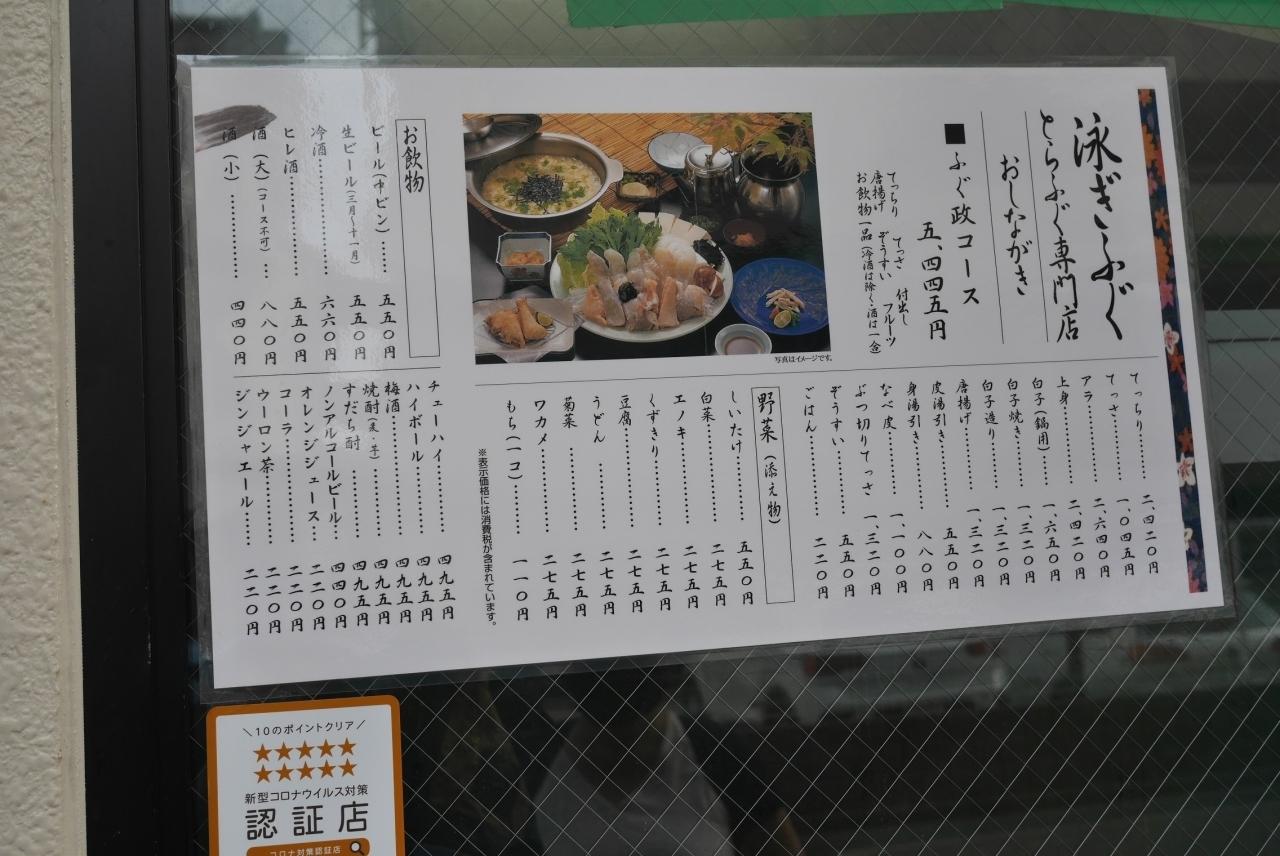 泳ぎふぐ
とらふぐ専門店
おしながき
■ふぐ政コース
五、四四五円
てっちり てっさ 付出し
唐揚げ ぞうすい フルーツ
お飲物一品(冷酒は除く・酒は一合)
写真はイメージです。
てっちり………二、四二〇円
てっさ………一、〇四五円
アラ………二、六四〇円
上身………二、四二〇円
白子(鍋用)………一、六五〇円
白子焼き………一、三二〇円
白子造り………一、三二〇円
唐揚げ………一、三二〇円
皮湯引き………五五〇円
身湯引き………八八〇円
なべ皮………一、一〇〇円
ぶつ切りてっさ 一、三二〇円
ぞうすい………五五〇円
ごはん………二二〇円
野菜(添え物)
しいたけ………五五〇円
白菜………二七五円
エノキ………二七五円
くずきり………二七五円
豆腐………二七五円
うどん………二七五円
菊菜………二七五円
ワカメ………二七五円
もち(一コ)………一一〇円
※表示価格には消費税が含まれています。
お飲物
ビール(中ビン)………五五〇円
生ビール(三月〜十一月) 五五〇円
冷酒………六六〇円
ヒレ酒………五五〇円
酒(大)(コース不可)…八八〇円
酒(小)………四四〇円
チューハイ………四九五円
ハイボール………四九五円
梅酒………四九五円
焼酎(麦・芋)………四九五円
すだち酎………四九五円
ノンアルコールビール…四四〇円
オレンジジュース…二二〇円
コーラ………二二〇円
ウーロン茶………二二〇円
ジンジャエール………二二〇円
\10のポイントクリア/
★★★★★
★★★★★
新型コロナウイルス対策
認証店
コロナ対策認証店